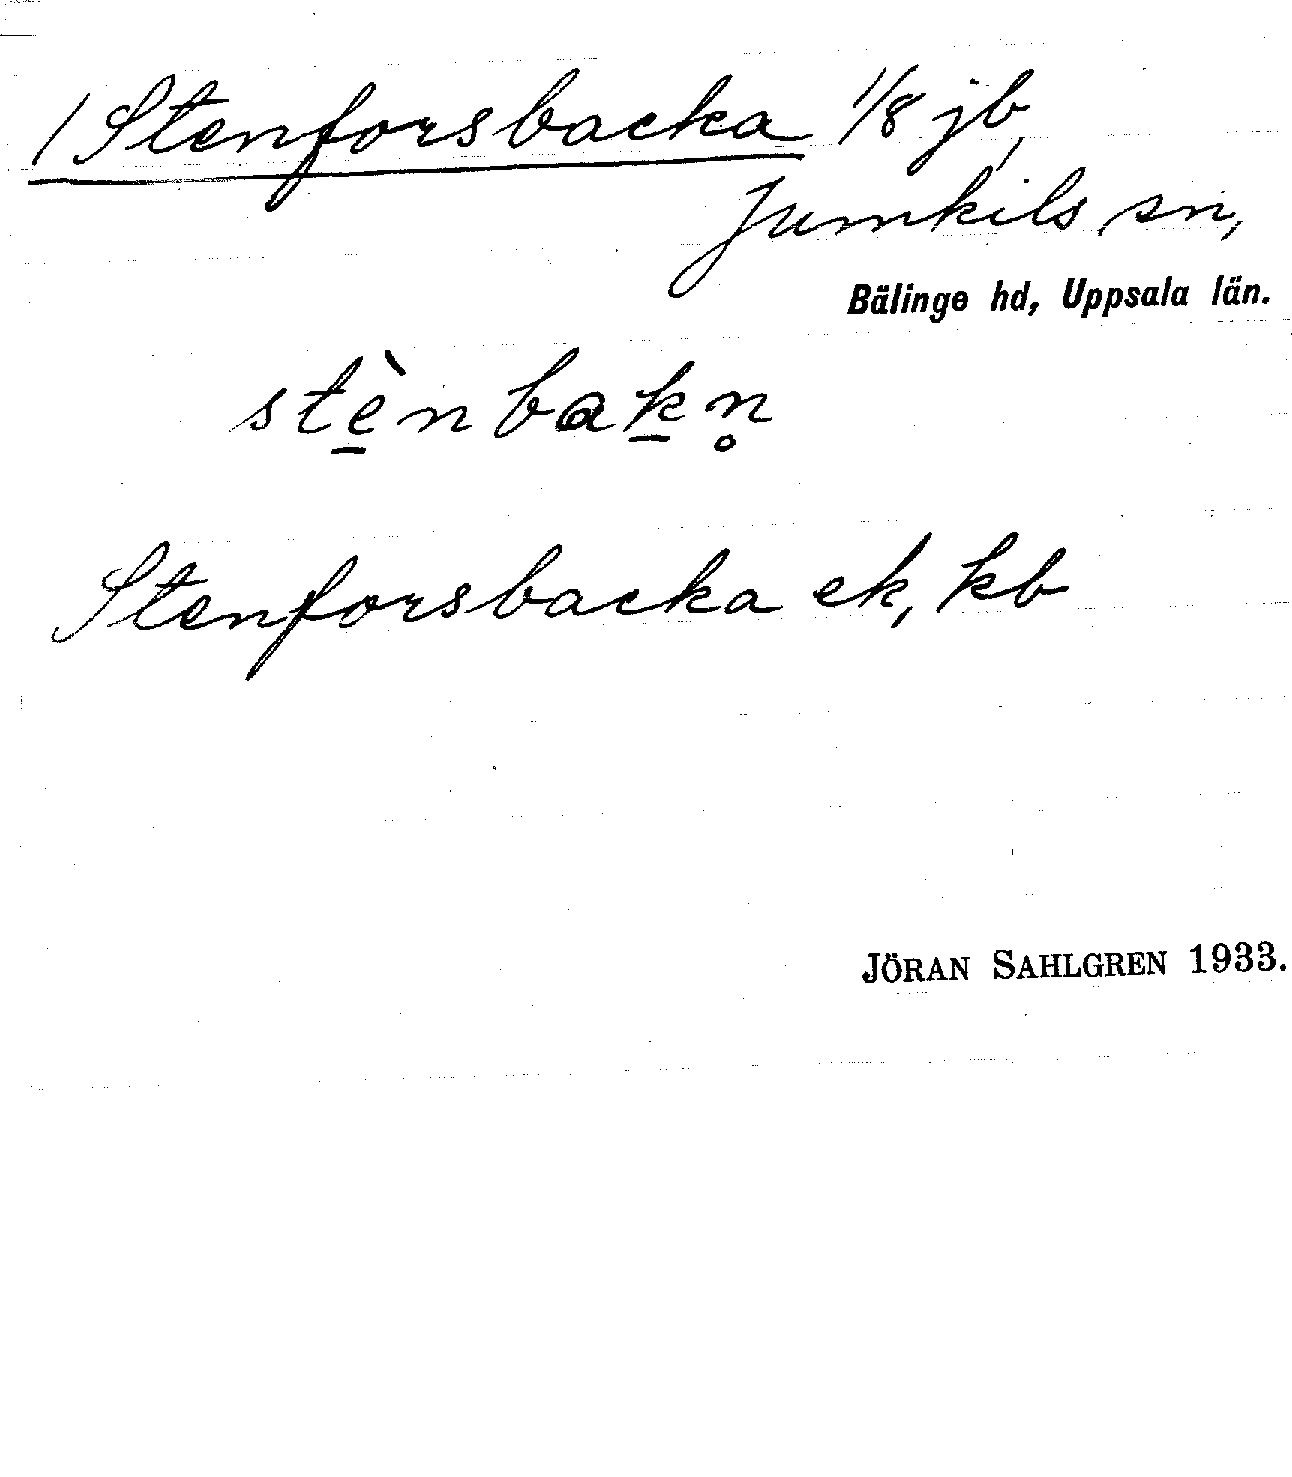 / Stenforsbacka 1/8 jb,
Jumkils sn,
Bälinge hd, Uppsala län.
stè̱nbaḵn̥
Stenforsbacka ek, kb
JÖRAN SAHLGREN 1933.